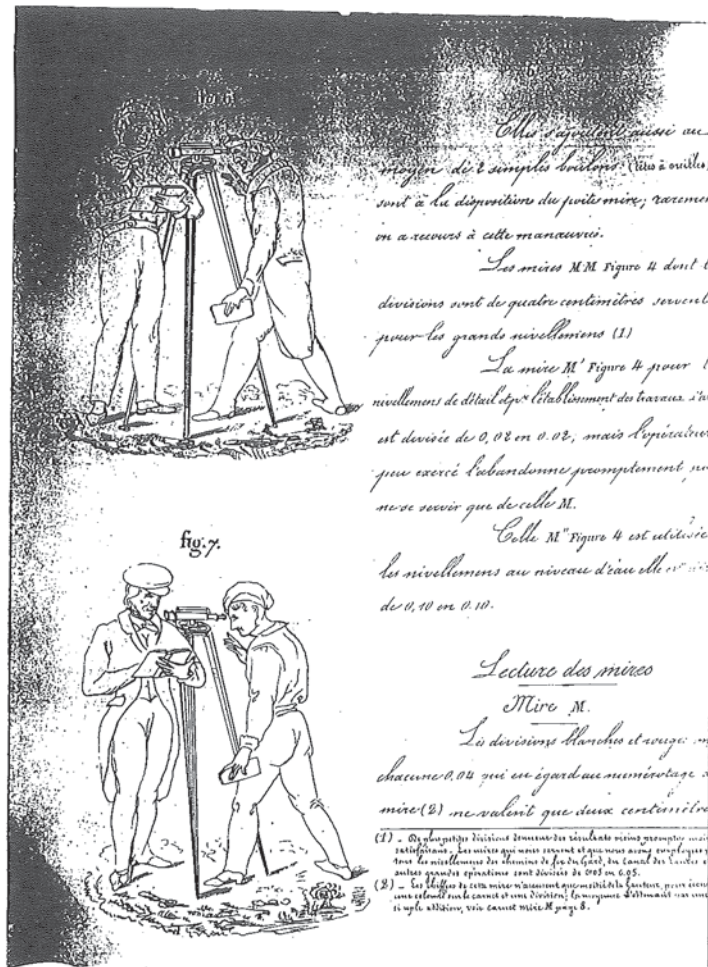 fig. 6.
Elles s'ajustent aussi au
moyen de 2 simples boulons (têtes à oreilles)
sont à la disposition du porte mire; raremen
on a recours à cette manœuvre.
Les mires MM Figure 4 dont l
divisions sont de quatre centimètres servent
pour les grands nivellemens (1)
La mire M' Figure 4 pour l
nivellemens de détail et pr. l'établissement des travaux d'a
est divisée de 0,02 en 0.02; mais l'opérateur
peu exercé l'abandonne promptement
ne se servir que de celle M.
Celle M" Figure 4 est utilisée
les nivellemens au niveau d'eau elle
de 0,10 en 0.10.
fig. 7.
Lecture des mires
Mire M.
Les divisions blanches et rouges
chacune 0,04 qui eu égard au numérotage
mire (2) ne valent que deux centimètre
(1) - De plus petites divisions donnent des résultats moins prompts
satisfaisans. Les mires qui nous servent et que nous avons employées
tous les nivellemens des chemins de fer du Gard, du Canal des Landes e
autres grandes opérations sont divisées de 0.05 en 0.05.
(2) - Les chiffres de cette mire n'accusent que moitié de la hauteur, pour
une colonne sur le carnet et une division; la moyenne s'obtenant par une
simple addition, voir carnet mire M page 8.